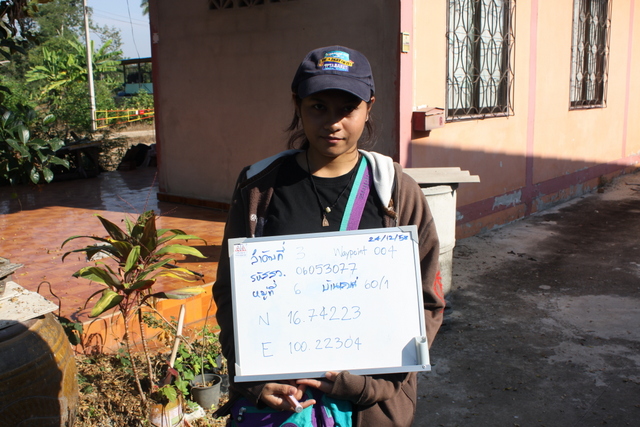 24/12/53
ลำดับที่ 3 Waypoint 004
รหัสรร. 06053077
หมู่ที่ 6 บ้านเลขที่ 60/1
N 16.74223
E 100.22304